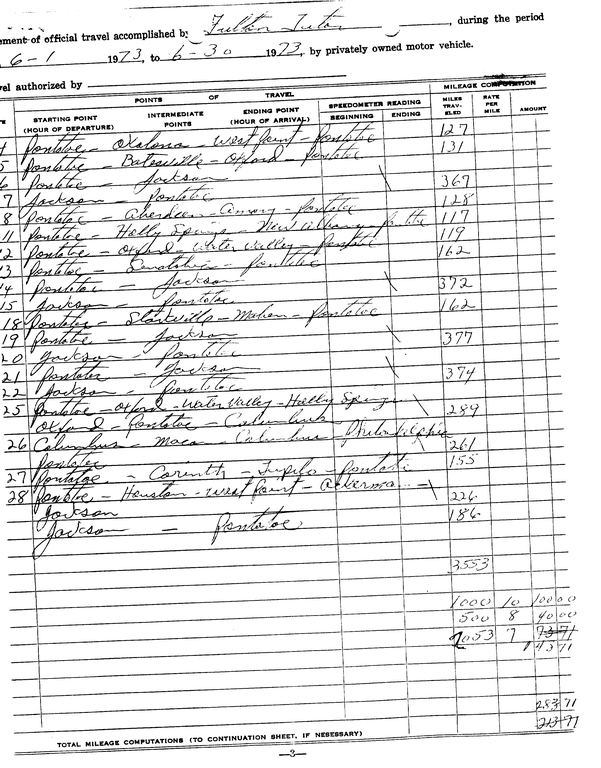 ement of official travel accomplished by Fulton Tutor, during the period
6-1 1973, to 6-30 1973, by privately owned motor vehicle.
vel authorized by
POINTS OF TRAVEL
SPEEDOMETER READING
MILEAGE COMPUTATION
TE
STARTING POINT (HOUR OF DEPARTURE)
INTERMEDIATE POINTS
ENDING POINT (HOUR OF ARRIVAL)
BEGINNING
ENDING
MILES TRAV-ELED
RATE PER MILE
AMOUNT
4 Pontotoc - Okalona - West Point - Pontotoc 127
5 Pontotoc - Batesville - Oxford - Pontotoc 131
6 Pontotoc - Jackson \
7 Jackson - Pontotoc 367
8 Pontotoc - Aberdeen - Amory - Pontotoc 128
11 Pontotoc - Holly Springs - New Albany - 117
12 Pontotoc - Oxford - Water Valley - Pontotoc 119
13 Pontotoc - Senatobia - Pontotoc 162
14 Pontotoc - Jackson \
15 Jackson - Pontotoc 372
18 Pontotoc - Starkville - - Pontotoc 162
19 Pontotoc - Jackson \
20 Jackson - Pontotoc 377
21 Pontotoc - Jackson \
22 Jackson - Pontotoc 374
25 Pontotoc - Oxford - Water Valley - Holly Springs \
Oxford - Pontotoc - Columbus 289
26 Columbus - Macon - Columbus Philadelphia \
Pontotoc 261
27 Pontotoc - Corinth - Tupelo - Pontotoc 155
28 Pontotoc - Houston - West Point - Ackerman - \
Jackson 226
Jackson - Pontotoc 186
3553
1000 10 100 00
500 8 40 00
2053 7 73 71
143 71
283 71
213 71
TOTAL MILEAGE COMPUTATIONS (TO CONTINUATION SHEET, IF NESESSARY)
-3-